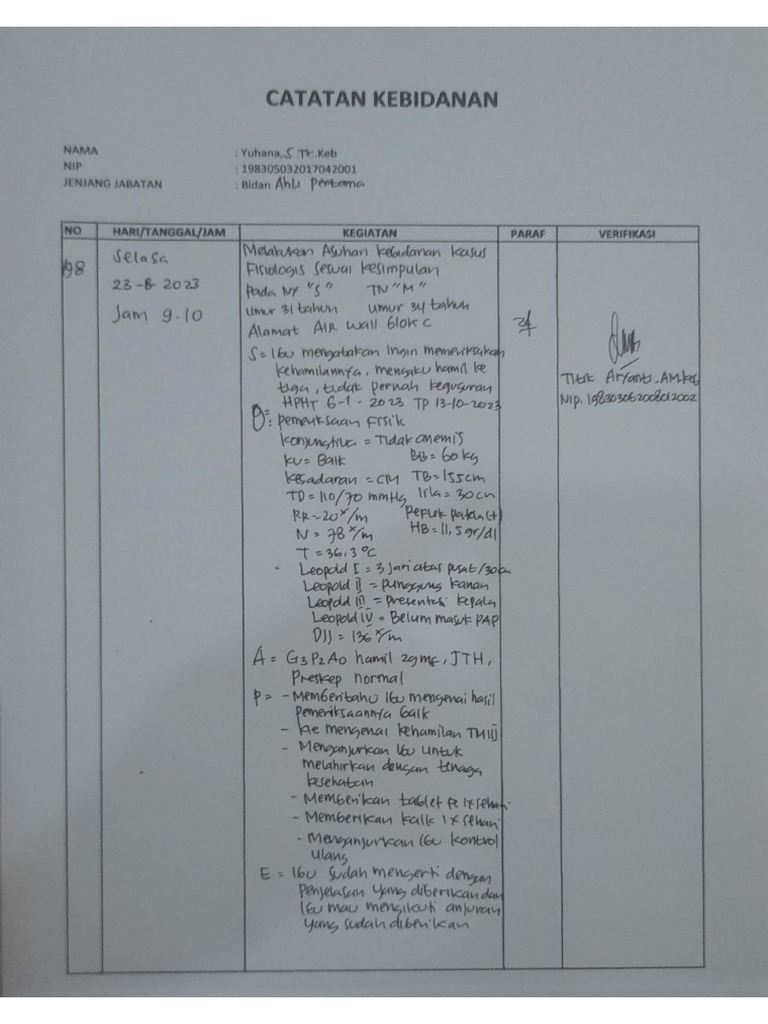 CATATAN KEBIDANAN
NAMA : Yuhana, S Tr.Keb
NIP : 198305032017042001
JENJANG JABATAN : Bidan Ahli Pertama
NO HARI/TANGGAL/JAM KEGIATAN PARAF VERIFIKASI
198
Selasa
23-8-2023
Jam 9.10
Melakukan Asuhan kebidanan kasus
Fisiologis sesuai kesimpulan
Pada Ny "S" TN "M"
Umur 31 tahun umur 34 tahun
Alamat AIR Wall blok C
S = Ibu mengatakan ingin memeriksakan
kehamilannya, mengaku hamil ke
tiga, tidak pernah keguguran
HPHT 6-1-2023 TP 13-10-2023
O : pemeriksaan Fisik
Konjungtiva = Tidak anemis
KU = Baik BB = 60 kg
Kesadaran = CM TB = 155cm
TD = 110/70 mmHg lila = 30 cm
RR = 20 x/m Reflek patela (+)
N = 78 x/m HB = 11,5 gr/dl
T = 36,3 °C
- Leopold I = 3 jari atas pusat/30cm
Leopold II = punggung kanan
Leopold III = presentasi kepala
Leopold IV = Belum masuk PAP
DJJ = 136 x/m
A = G3P2A0 hamil 29 mg, JTH,
Preskep normal
P = - Memberitahu Ibu mengenai hasil
pemeriksaannya baik
- KIE mengenai kehamilan TM III
- Menganjurkan Ibu untuk
melahirkan dengan tenaga
kesehatan
- Memberikan tablet Fe 1x sehari
- Memberikan kalk 1x sehari
- Menganjurkan Ibu kontrol
ulang
E = Ibu sudah mengerti dengan
penjelasan yang diberikan dan
Ibu mau mengikuti anjuran
yang sudah diberikan
Titik Aryanti, AM.Keb
NIP. 198303062008012002